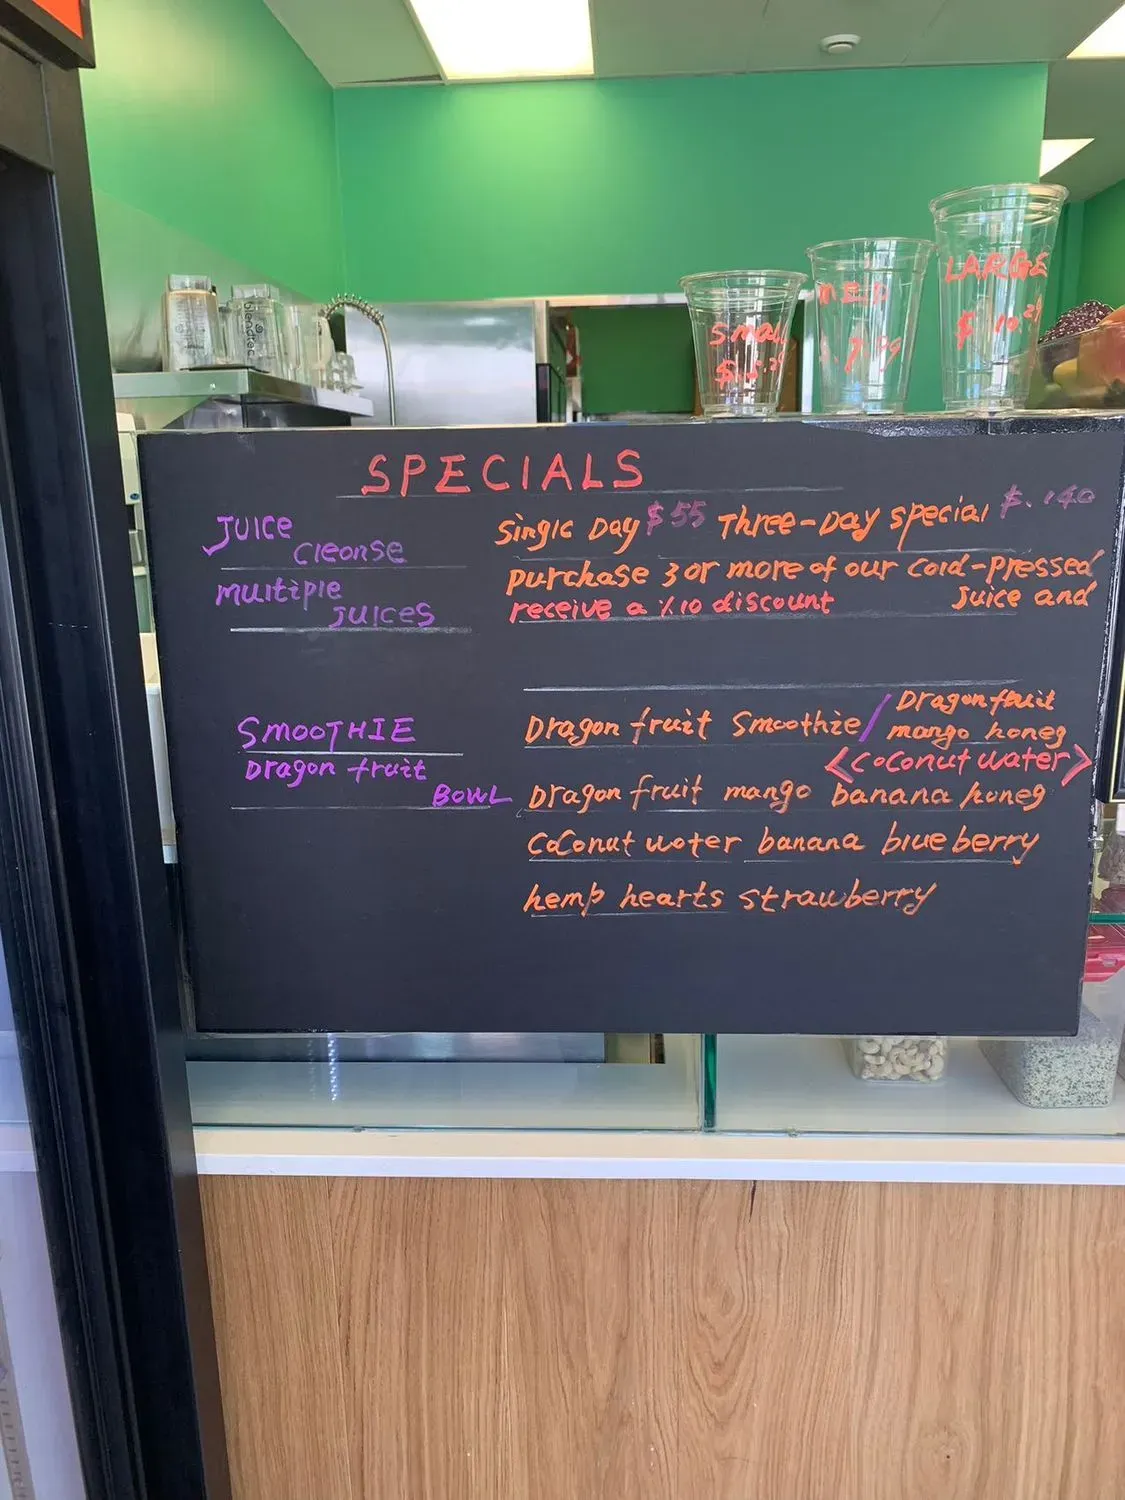 blendtec
Small
MED
LARGE
$10 25
SPECIALS
JUICE
cleonse
Single Day $55 Three-Day special $.140
multiple
JUICES
purchase 3 or more of our cord-pressed
juice and
receive a %10 discount
SMOOTHIE
Dragon fruit Smoothie / Dragon fruit
mango honeg
<coconut water>
Dragon fruit
BOWL
Dragon fruit mango banana honeg
coconut woter banana blueberry
hemp hearts strawberry